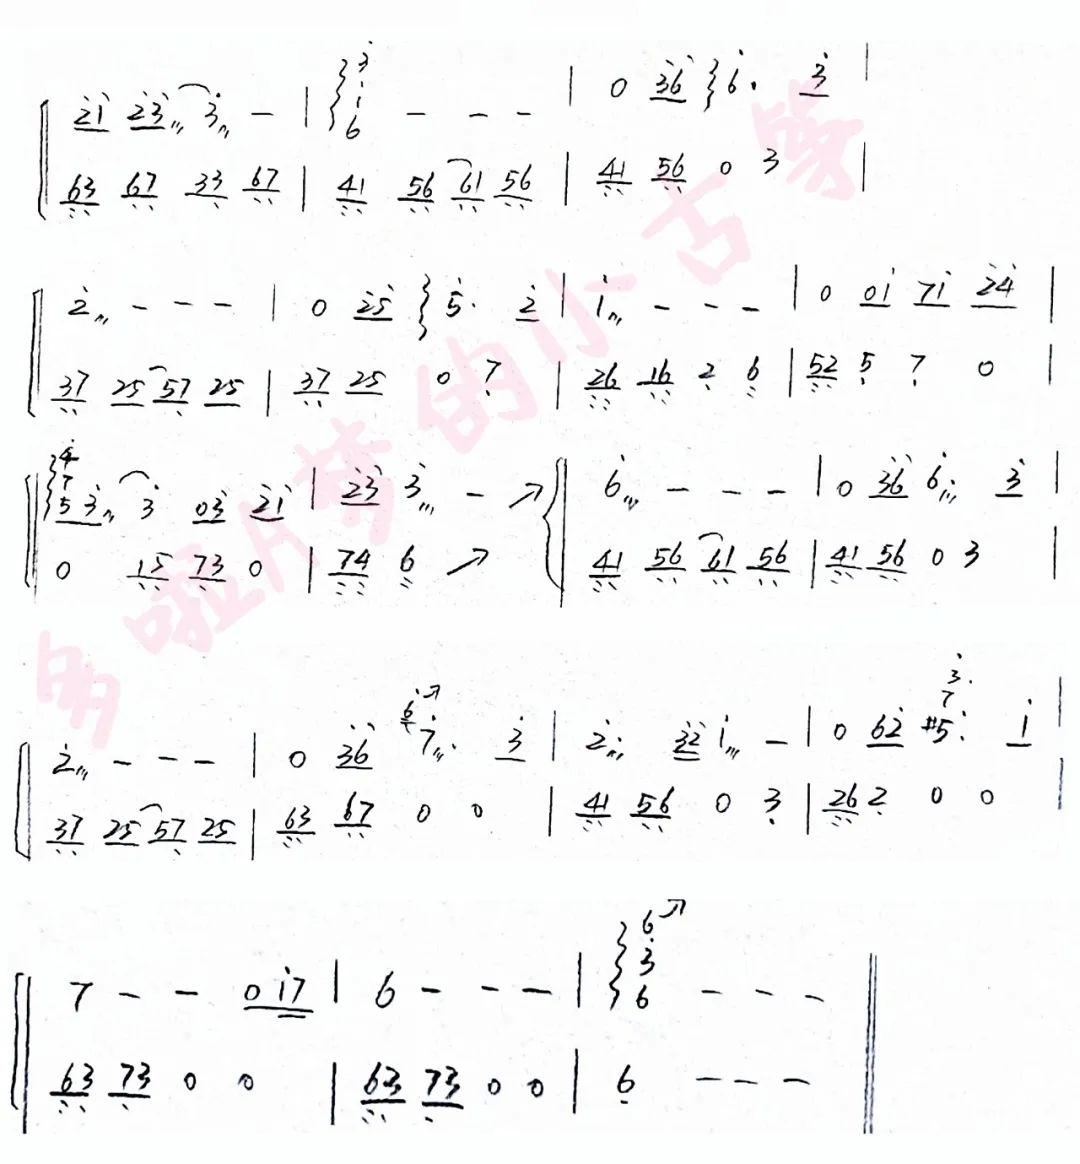 2̇1̇ 2̇3̇ 3̇ - | 3̇ 1̇ 6 - - - | 0 3̇6̇ 6̇· 3̇ |
63 67 33 67 | 41 56 61 56 | 41 56 0 3 |
2̇ - - - | 0 2̇5̇ 5̇· 2̇ | 1̇ - - - | 0 01̇ 71̇ 2̇4̇ |
37 25 57 25 | 37 25 0 7 | 26 16 2 6 | 52 5 7 0 |
4 7 5 3̇ 3̇ 03̇ 2̇1̇ | 2̇3̇ 3̇ - ↗ 6̇ - - - | 0 3̇6̇ 6̇· 3̇ |
0 15 73 0 | 74 6 ↗ 41 56 61 56 | 41 56 0 3 |
2̇ - - - | 0 3̇6̇ 6̇↗ 7̇· 3̇ | 2̇· 3̇2̇ 1̇ - | 0 62̇ 3̇ 7 #5· 1̇ |
37 25 57 25 | 63 67 0 0 | 41 56 0 3 | 26 2 0 0 |
7 - - 0 1̇7 | 6 - - - | 6̇↗ 3̇ 6 - - - ||
63 73 0 0 | 63 73 0 0 | 6 - - - ||
多啦A梦的小古筝